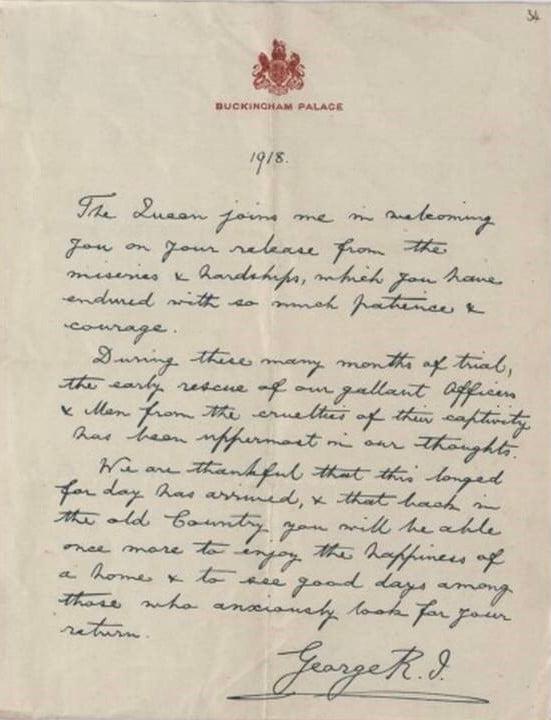 34
BUCKINGHAM PALACE
1918.
The Queen joins me in welcoming
you on your release from the
miseries & hardships, which you have
endured with so much patience &
courage.
During these many months of trial,
the early rescue of our gallant Officers
& Men from the cruelties of their captivity
has been uppermost in our thoughts.
We are thankful that this longed
for day has arrived, & that back in
the old Country you will be able
once more to enjoy the happiness of
a home & to see good days among
those who anxiously look for your
return.
George R.I.